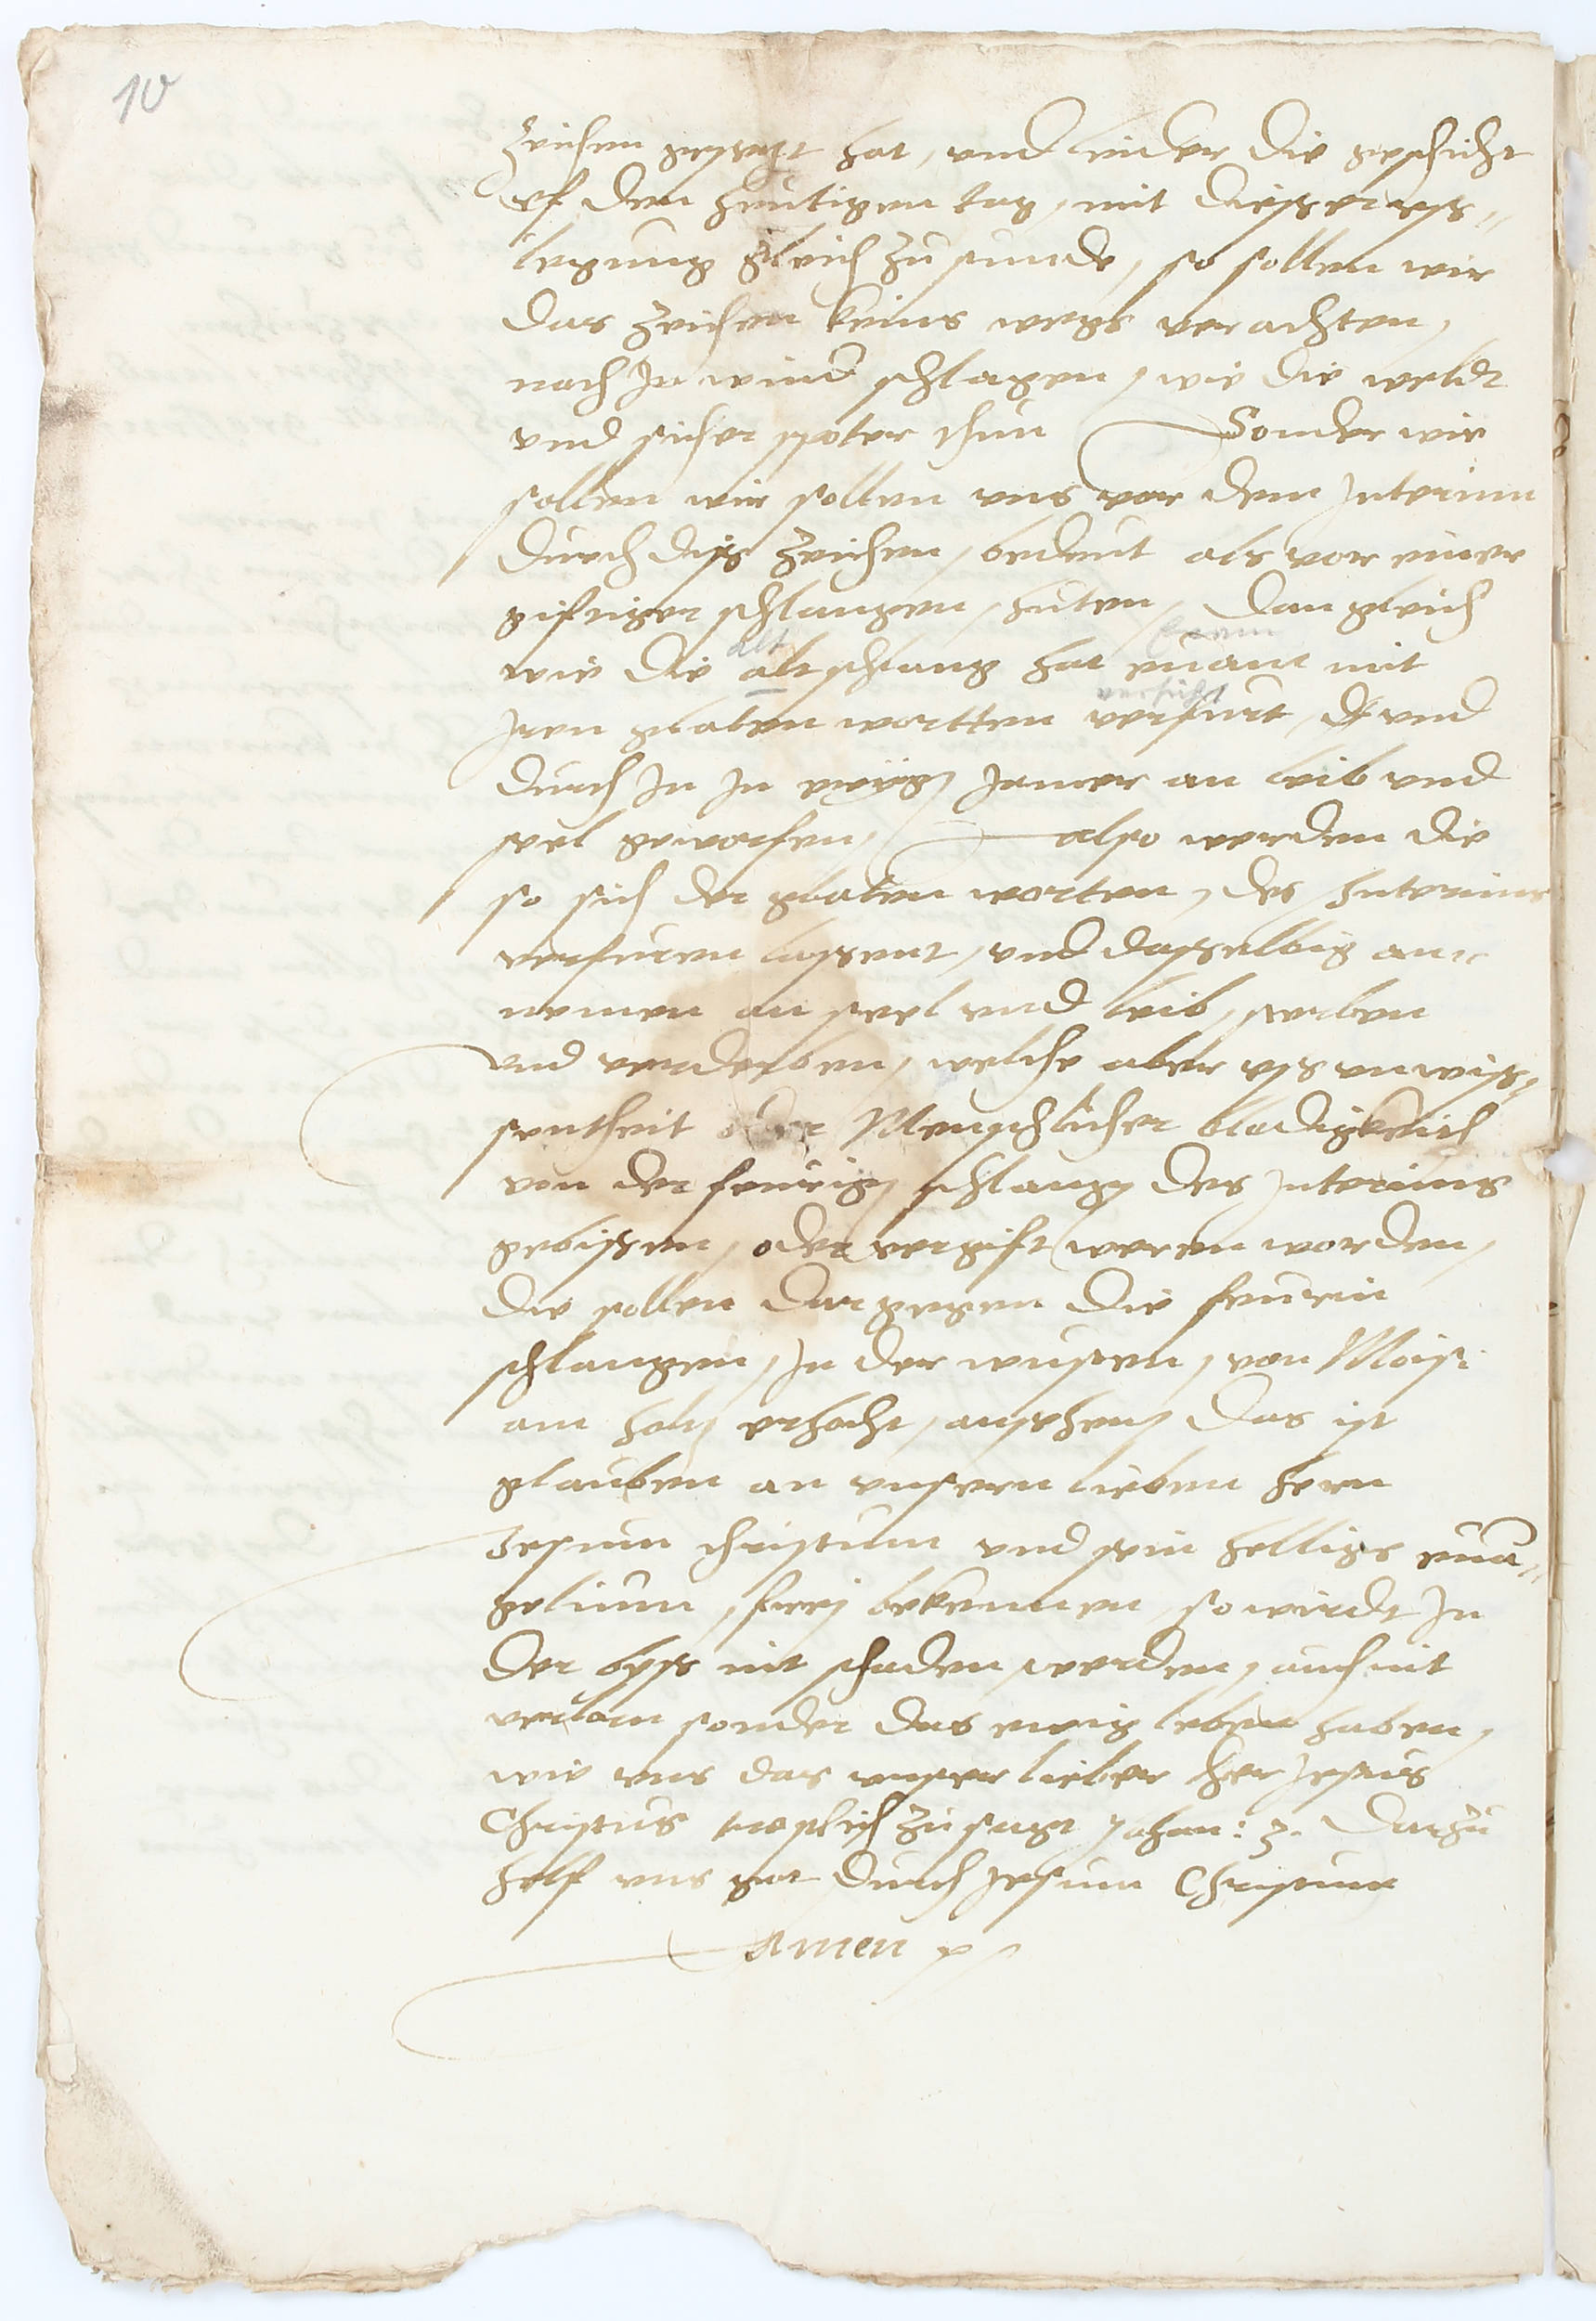 10
Zeichen gesetzt hat, vnd leider die geschicht
vf den heutigen tag, mit diesser vss„
legung gleich zu sumde, so sollen wir
das zeichen keins wegs verachten,
noch In wind schlagen, wie die weldt
vnd sicher spoter thun Sonder wir
sollen wir sollen vns vor dem Interim
durch diss zeichen, bedeut als vor einer
gifftiger schlangen, huten, dan gleich
alt
wie die alt schlang hat euam mit
verführt
Iren glaten wortten verfurt, vnd
durch In In ewig Jamer an leib vnd
seel geworfen, also werden die
so sich der glaten worten, des Interims
verfuren lassent, vnd dasselbig an„
nemen an seel vnd leib, sterben
vnd verderben, welche aber vss vnwiss„
sentheit oder Menschlicher blodigkeit
von der feurig schlang des Interims
gebissen, oder vergift weren worden,
die sollen dargegen die feurin
schlangen, In der wusten, von Moise
am holtz erhocht, ansehen das ist
glauben an vnsern lieben hern
Jesum christum vnd sein helligs eua„
gelium, frei bekennen, so wirdt In
der byss nit schaden werden, auch nit
verlorn sonder das ewig leben haben,
wie vns das vnser lieber her Jesus
Christus trostlich zu sagt Johan: 3. Darzu
helf vns got durch Jesum Christum
Amen